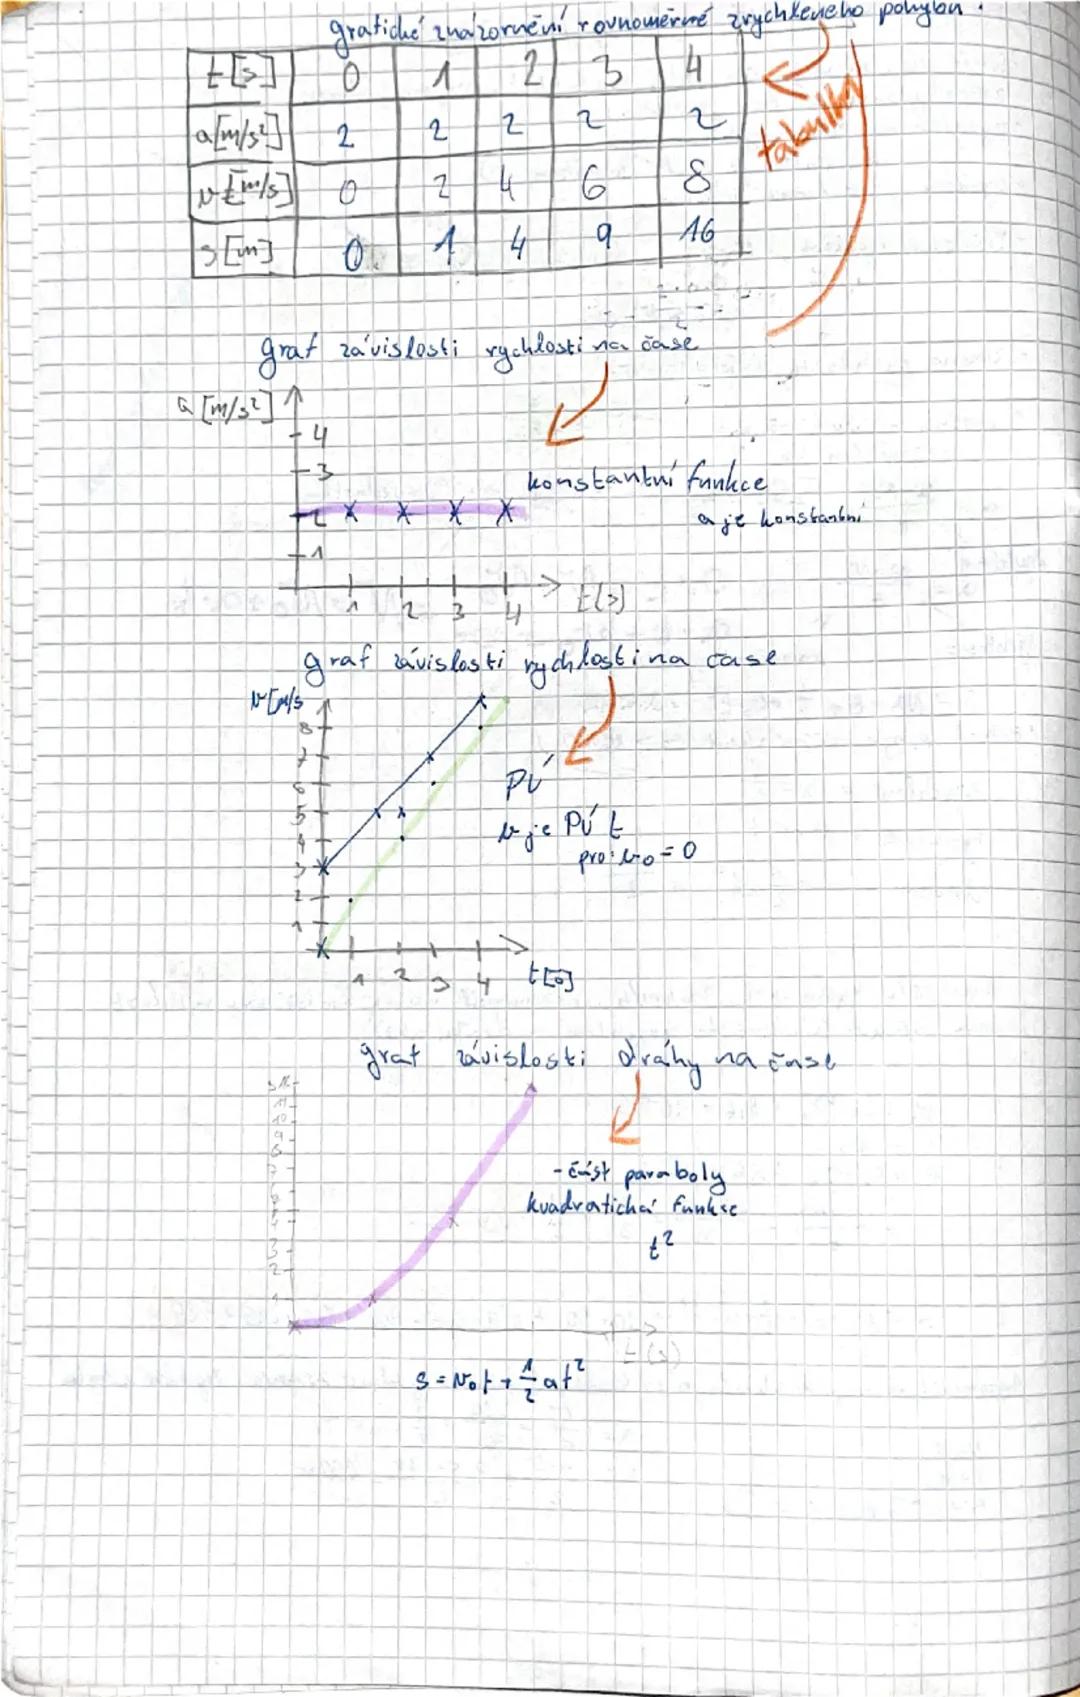 grafické znázornění rovnoměrně zrychleneho pohybu.
t[s] 0 1 2 3 4
a[m/s²] 2 2 2 2 2
tabulky
v[m/s] 0 2 4 6 8
s[m] 0 1 4 9 16
graf závislosti rychlosti na čase
a [m/s²]
4
3
konstantní funkce
2
a je konstantní
1
1 2 3 4 t(s)
graf závislosti rychlosti na čase
v[m/s
8
7
6
PÚ
5
v je PÚ t
4
pro: v0 = 0
3
2
1
1 2 3 4 t[s]
graf závislosti dráhy na čase
11
10
9
8
7
- část paraboly
kvadratická funkce
t²
3
2
1
t(s)
s = v₀t + 1/2 at²